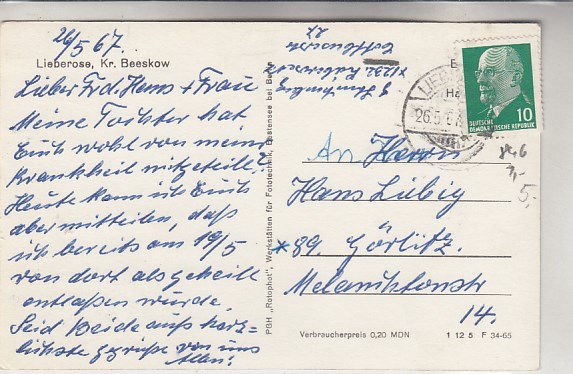 26/5 67.
Lieberose, Kr. Beeskow
Lieber Frd. Hans + Frau
Meine Tochter hat
Euch wohl von meiner
Krankheit mitgeteilt?
Heute kann ich Euch
aber mitteilen, daß
ich bereits am 19/5
von dort als geheilt
entlaßen wurde.
Seid Beide aufs herz=
lichste gegrüßt von uns
Allen!
PGH „Rotophot", Werkstätten für Fototechnik, Bestensee bei Berlin
X1232 Lieberose
26.5.67
10
DEUTSCHE
DEMOKRATISCHE REPUBLIK
An Herrn
Hans Liebig
*89. Görlitz.
Melanchtonstr
14.
5,-
Verbraucherpreis 0,20 MDN
1 12 5 F 34-65